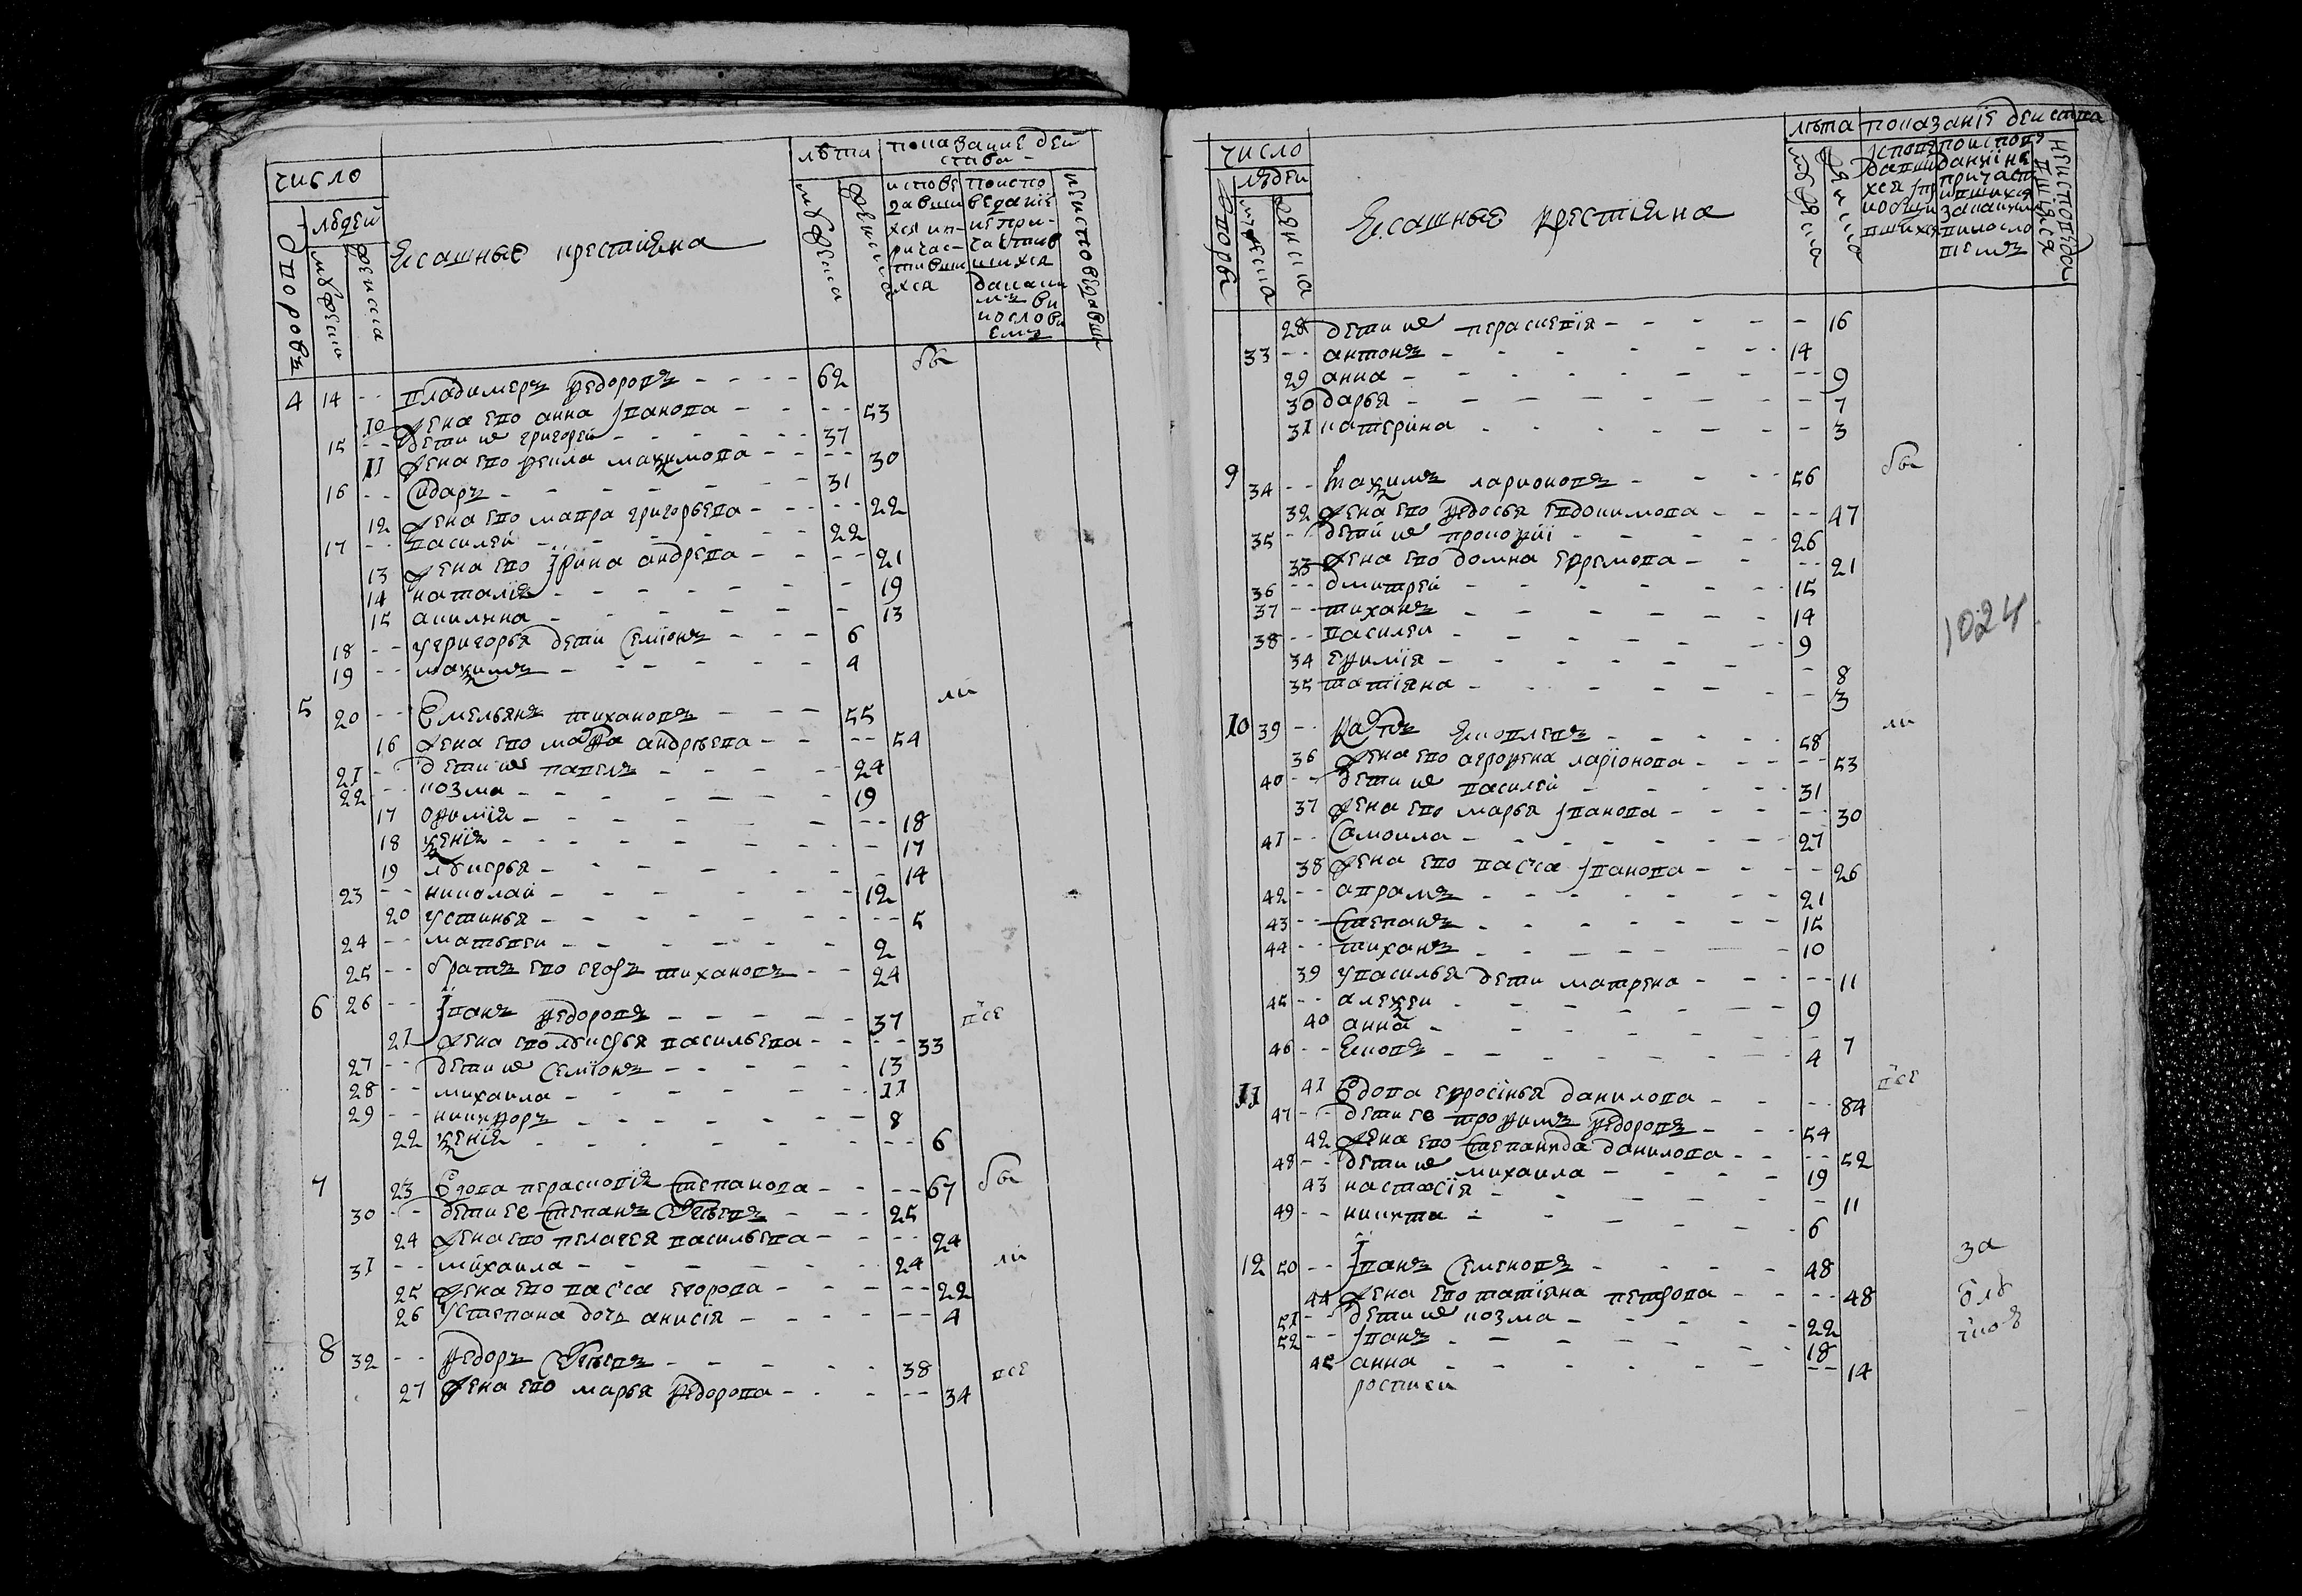 число
людей
дворовъ
мужеска
женска
Ясашные крестіяна
лѣта
мужеска
женска
показание дей
ства
исповѣ
давши
хся и п
ричас
тивши
хся
поиспо
ведание
не при
частив
шихся
за каки
мъ ви
нослові
емъ
неисповѣдавши
4 14 -- владимеръ федоровъ 62 бы
10 жена ево анна Iванова 53
15 -- дети их григорей 37
11 жена ево фекла маѯимова 30
16 -- Сидаръ 31
12 жена ево мавра григорьева 22
17 -- василей 22
13 жена ево Iрина андрева 21
14 наталія 19
15 акилина 13
18 -- у григорья дети Семіонъ 6
19 -- маѯимъ 4
5 20 -- Емельянъ тихановъ 55 ли
16 жена ево марфа андрѣева 54
21 -- дети их павелъ 24
22 -- козма 19
17 офимія 18
18 ѯенія 17
19 лукерья 14
23 -- николай 12
20 устинья 5
24 -- матвѣи 2
25 -- братъ ево егоръ тихановъ 24
6 26 -- Iванъ федоровъ 37 все
21 жена ево лукерья васильева 33
27 -- дети их Семіонъ 13
28 -- михаила 11
29 -- никифоръ 8
22 ѯенія 6
7 23 Вдова парасковія Степанова 67 бы
30 -- дети ее Степанъ 25
24 жена ево пелагея васильева 24
31 -- михаила 24 ли
25 жена ево васса егорова 22
26 У степана дочь анисія 4
8 32 -- федоръ 38 все
27 жена ево марья федорова 34
число
людеи
дворовъ
мужеска
женска
Ясашные крестіяна
лѣта
мужеска
женска
показаніе деиства
28 дети их перасковія 16
33 -- антонъ 14
29 анна 9
30 дарья 7
31 катерина 3
9 34 -- Маѯимъ ларионовъ 56 бы
32 жена ево федосья евдокимова 47
35 -- дети их прокофіи 26
33 жена ево домна ефремова 21
36 -- дмитреи 15
37 -- тиханъ 14
38 -- василеи 9
34 ефимія 8
35 татіяна 3
1024
10 39 -- яковлевъ 58 ли
36 жена ево аграфена ларіонова 53
40 -- дети их василей 31
37 жена ево марья Iванова 30
41 -- Самоила 27
38 жена ево васса Iванова 26
42 -- аврамъ 21
43 -- Степанъ 15
44 -- тиханъ 10
39 у василья дети матрена 11
45 -- алеѯеи 9
40 анна 7
46 -- Яковъ 4
11 41 Вдова ефросінья данилова 84 все
47 -- дети ее трофимъ федоровъ 54
42 жена ево Степанида данилова 52
48 -- дети их михаила 19
43 настасія 11
49 -- никита 6
12 50 -- Iванъ Семеновъ 48 за
44 жена ево татіяна петрова 48
51 -- дети их козма 22
52 -- Iванъ 18
45 анна 14
росписи